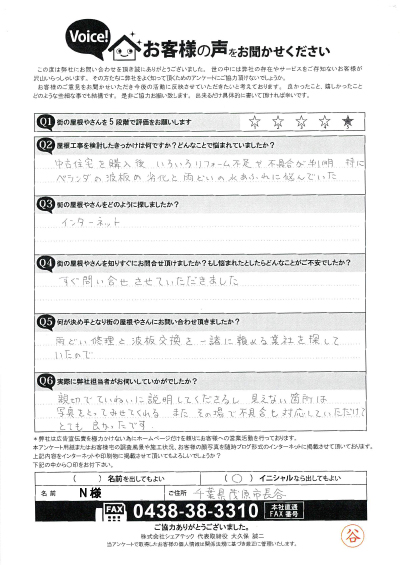 Voice!
お客様の声をお聞かせください
この度は弊社にお問い合わせを頂き誠にありがとうございました。世の中には弊社の存在やサービスをご存知ないお客様が
沢山いらっしゃいます。その方たちに弊社をよく知って頂くためのアンケートにご協力頂けないでしょうか。
お客様のご意見をお聞かせいただき今後の活動に反映させていただきたいと考えております。良かったこと、嬉しかったこと
どのような些細な事でも結構です。是非ご協力お願い致します。出来るだけ具体的に書いて頂ければ幸いです。
Q1 街の屋根やさんを5段階で評価をお願いします
☆ ☆ ☆ ☆ ★
Q2 屋根工事を検討したきっかけは何ですか?どんなことで悩まれていましたか?
中古住宅を購入後 いろいろリフォーム不足で不具合が判明 特に
ベランダの波板の劣化と雨どいの水あふれに悩んでいた
Q3 街の屋根やさんをどのように探しましたか?
インターネット
Q4 街の屋根やさんを知りすぐにお問合せ頂けましたか?もし悩まれたとしたらどんなことがご不安でしたか?
すぐ問い合せさせていただきました
Q5 何が決め手となり街の屋根やさんにお問い合わせ頂きましたか?
雨どい修理と波板交換を一緒に頼める業社を探して
いたので
Q6 実際に弊社担当者がお伺いしていかがでしたか?
親切でていねいに説明してくださるし 見えない箇所は
写真をとってみせてくれる また その場で不具合も対応していただけて
とても良かったです
＊弊社は広告宣伝費を極力かけない為にホームページだけを頼りにお客様への営業活動を行っております。
本アンケート用紙またはお客様宅の調査風景や施工状況、お客様の顔写真を随時ブログ形式のインターネットに掲載させて頂いております。
上記内容をインターネットや印刷物に掲載させて頂いてもよろしいでしょうか?
下記の中から〇印をお付け下さい。
( ) 名前を出してもよい (〇) イニシャルなら出してもよい
名前 N様 ご住所 千葉県茂原市長谷
FAX 0438-38-3310 本社直通 FAX番号
ご協力ありがとうございました。
株式会社シェアテック 代表取締役 大久保 誠二
当アンケートで取得したお客様の個人情報は関係法規に基づき厳正に管理いたします。
谷